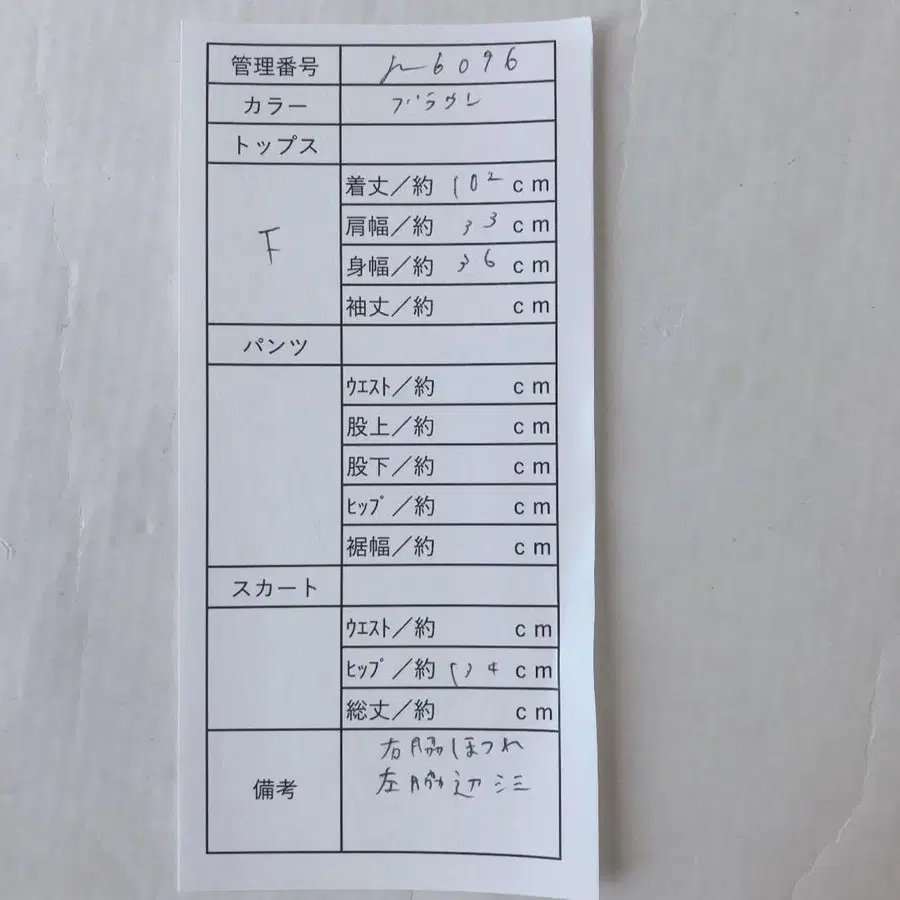 管理番号 h6096
カラー ブラウン
トップス
着丈／約 102 cm
F 肩幅／約 33 cm
身幅／約 36 cm
袖丈／約 cm
パンツ
ｳｴｽﾄ／約 cm
股上／約 cm
股下／約 cm
ﾋｯﾌﾟ／約 cm
裾幅／約 cm
スカート
ｳｴｽﾄ／約 cm
ﾋｯﾌﾟ／約 134 cm
総丈／約 cm
備考 右脇ほつれ
左脇辺シミ